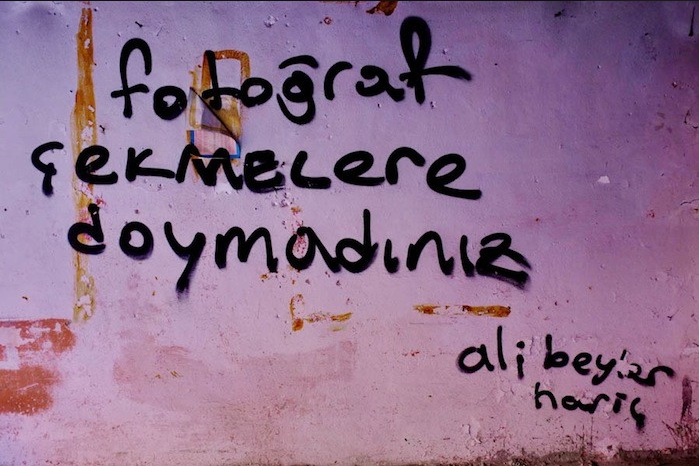 fotoğraf
çekmelere
doymadınız
ali bey'ler
hariç